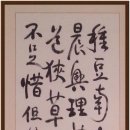 種豆南
晨興理
道狹草
不足惜但